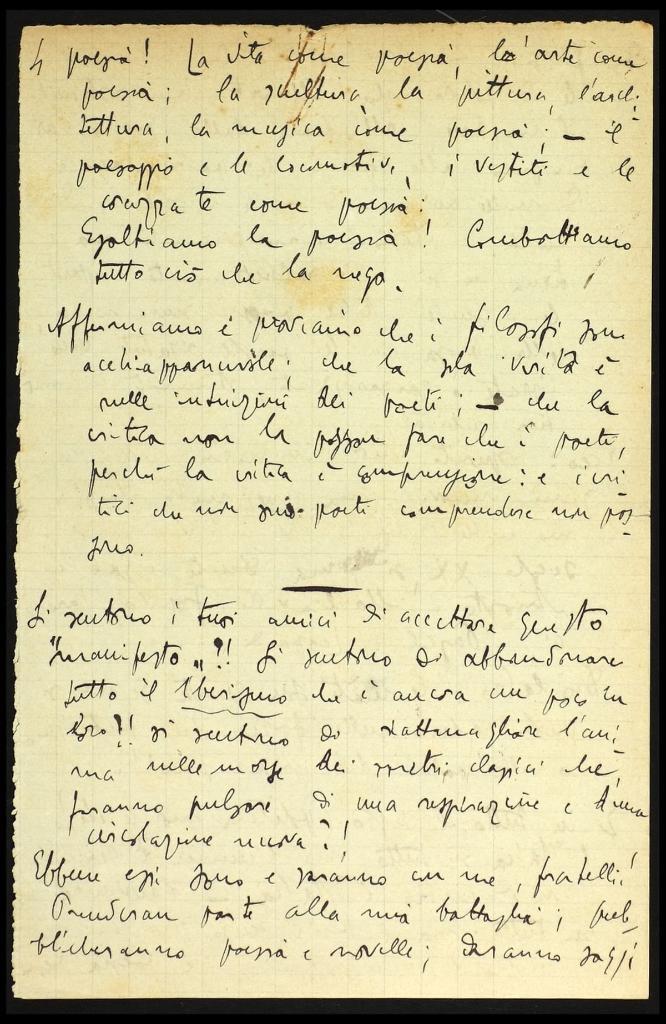 4 poesia! La vita come poesia, l'arte come
poesia; la scultura, la pittura, l'archi-
tettura, la musica come poesia; — il
paesaggio e le locomotive, i vestiti e le
corazzate come poesia:
Esaltiamo la poesia! Combattiamo
tutto ciò che la nega.
Affermiamo e proviamo che i filosofi sono
acchiappanuvole; che la sola verità è
nelle intuizioni dei poeti; — che la
critica non la possan fare che i poeti,
perché la critica è comprensione: e i cri
tici che non sono poeti comprendere non pos-
sono.
Si sentono i tuoi amici di accettare questo
"manifesto"?! Si sentono di abbandonare
tutto il che è ancora un poco in
loro?! si sentono di rattenagliare l'ani-
ma nelle morse dei metri classici che
faranno pulsare di una respirazione e d'una
circolazione nuova?!
Ebbene essi sono e saranno con me, fratelli!
Prenderan parte alla mia battaglia; pub-
blicheranno poesia e novelle; daranno saggi